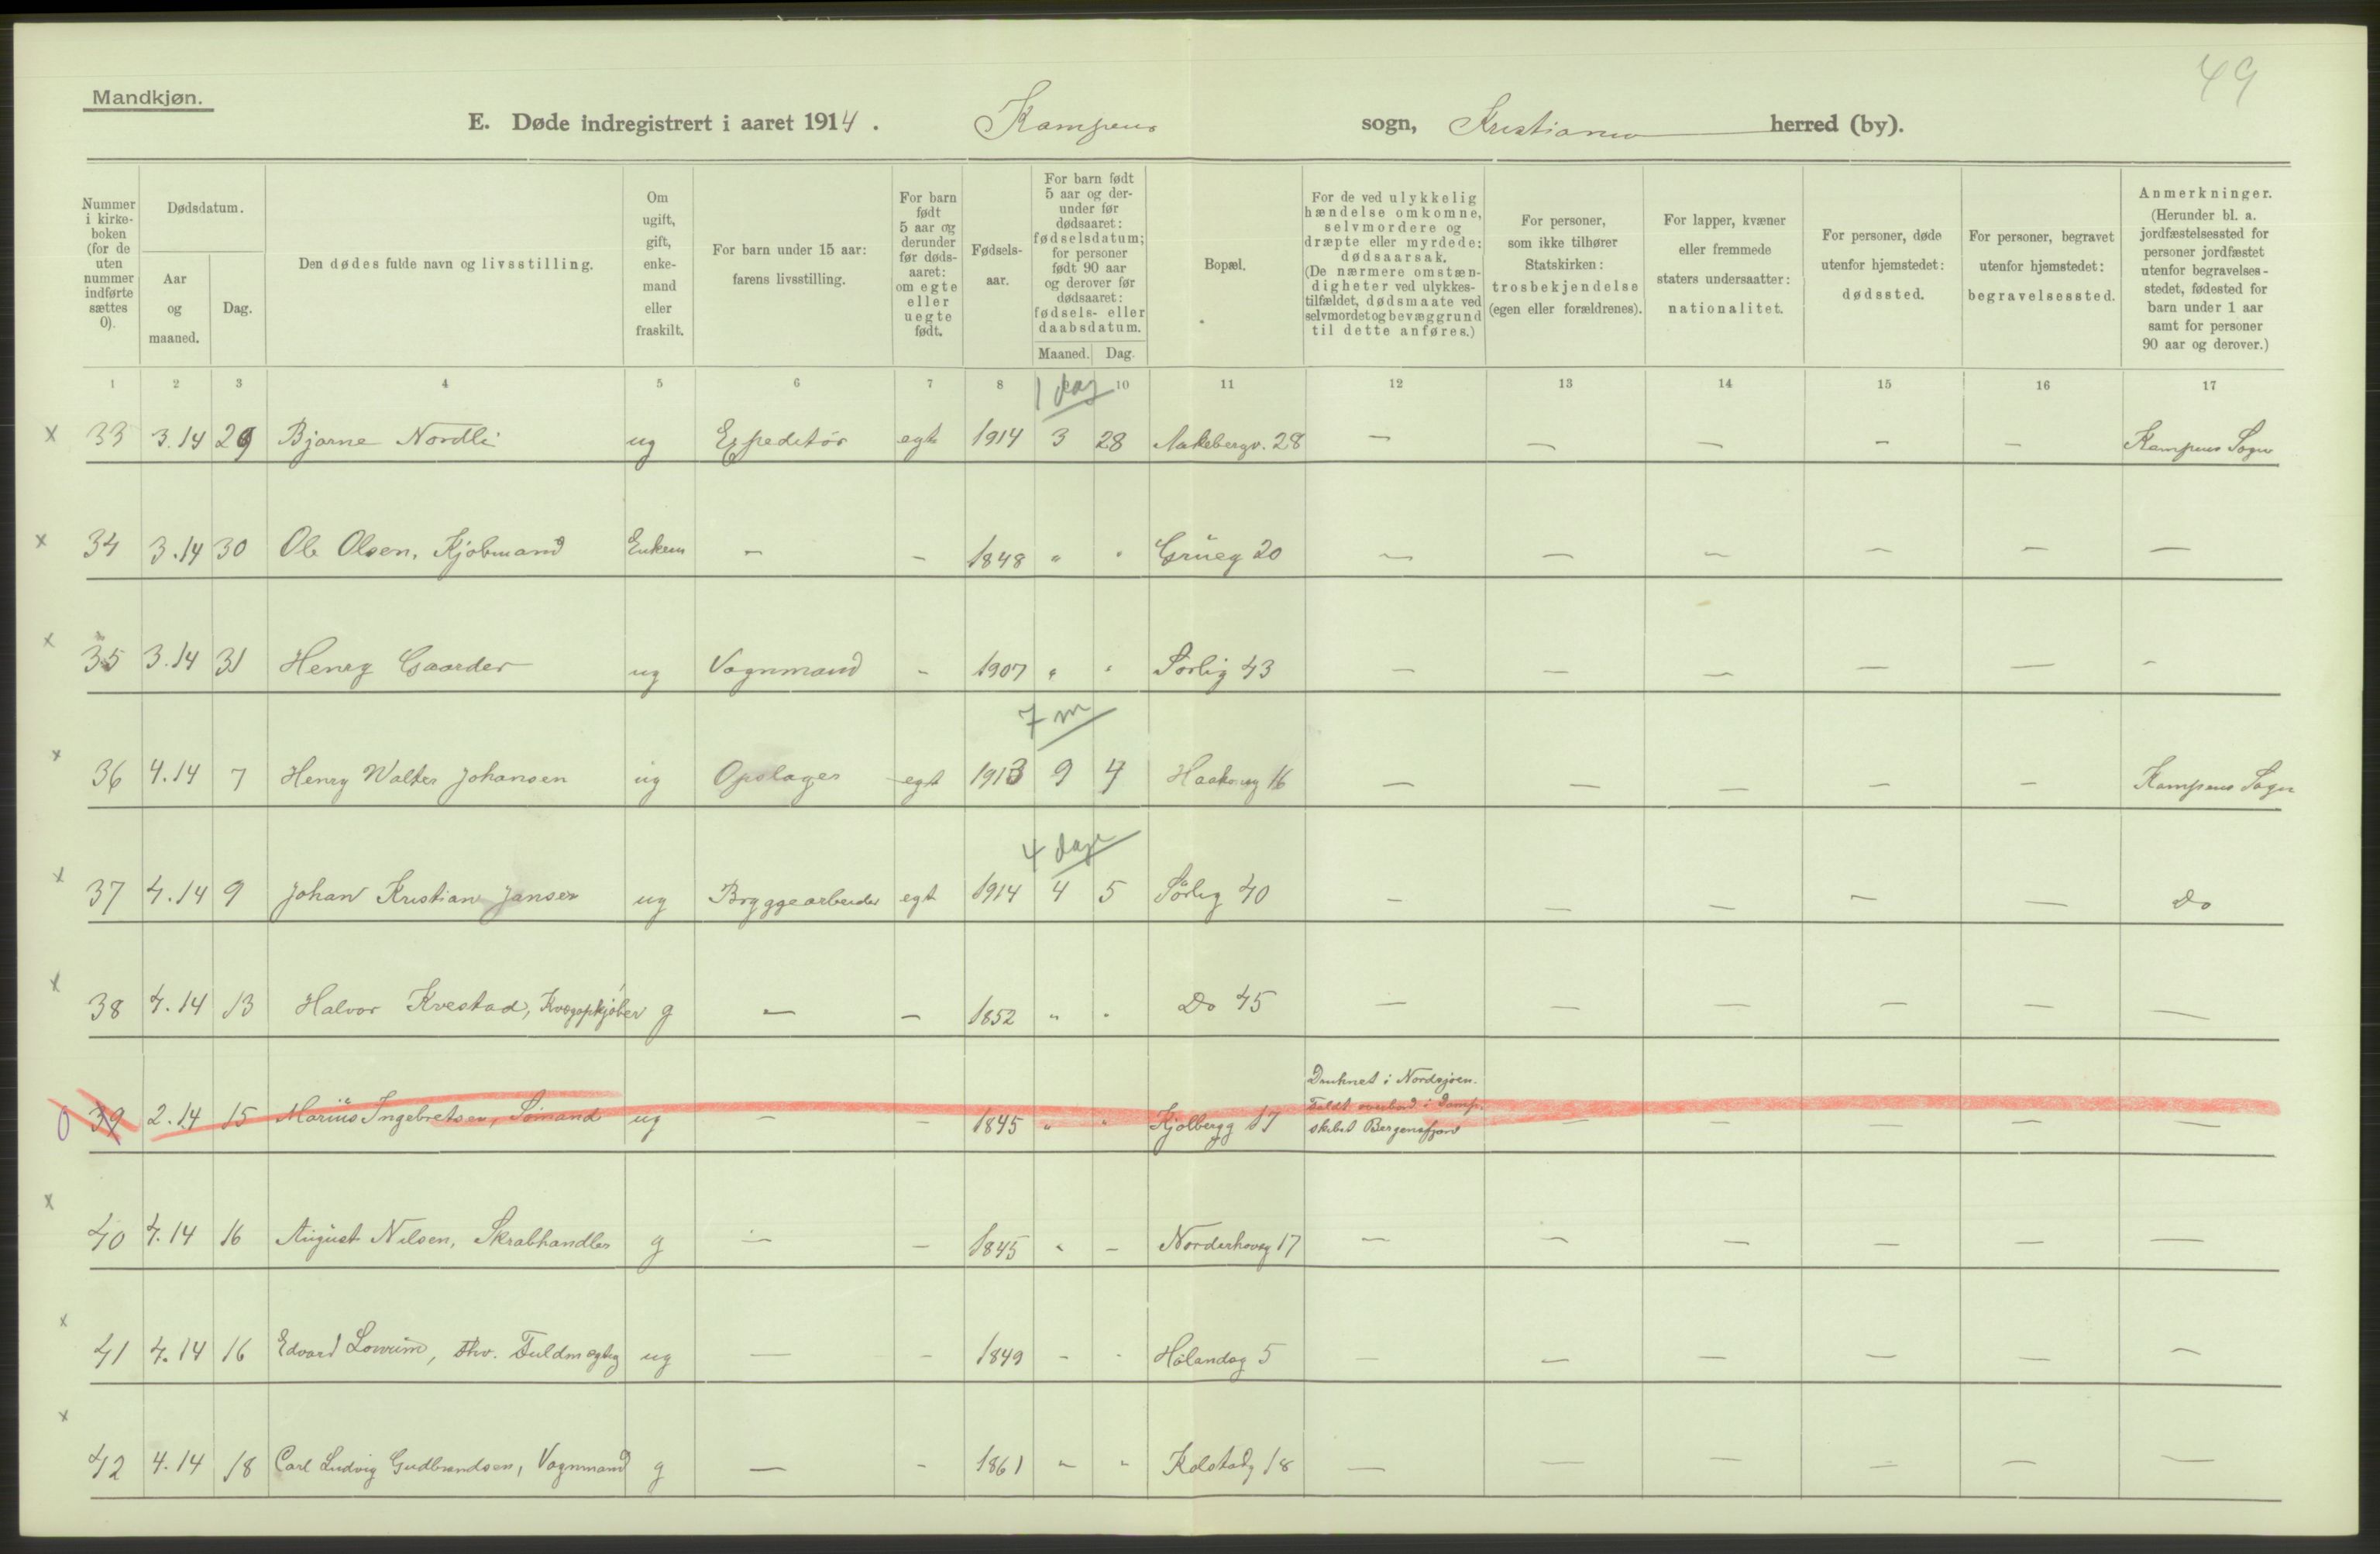 49
Mandkjøn.
E. Døde indregistrert i aaret 1914. Kampens sogn, Kristiania herred (by).
Nummer i kirke- boken (for de uten nummer indførte sættes 0).
Dødsdatum.
Aar og maaned.
Dag.
Den dødes fulde navn og livsstilling.
Om ugift, gift, enke- mand eller fraskilt.
For barn under 15 aar: farens livsstilling.
For barn født 5 aar og derunder før døds- aaret: om egte eller uegte født.
Fødsels- aar.
For barn født 5 aar og der- under før dødsaaret: fødselsdatum; for personer født 90 aar og derover før dødsaaret: fødsels- eller daabsdatum.
Maaned. Dag.
Bopæl.
For de ved ulykkelig hændelse omkomne, selvmordere og dræpte eller myrdede: dødsaarsak. (De nærmere omstæn- digheter ved ulykkes- tilfældet, dødsmaate ved selvmordet og bevæggrund til dette anføres.)
For personer, som ikke tilhører Statskirken: trosbekjendelse (egen eller forældrenes).
For lapper, kvæner eller fremmede staters undersaatter: nationalitet.
For personer, døde utenfor hjemstedet: dødssted.
For personer, begravet utenfor hjemstedet: begravelsessted.
Anmerkninger. (Herunder bl. a. jordfæstelsessted for personer jordfæstet utenfor begravelses- stedet, fødested for barn under 1 aar samt for personer 90 aar og derover.)
1 2 3 4 5 6 7 8 9 10 11 12 13 14 15 16 17
1 dag
x 33 3.14 29 Bjarne Nordli ug Expeditør egte 1914 3 28 Aakebergv. 28 — — — — — Kampens Sogn
x 34 3.14 30 Ole Olsen, Kjøbmand Enkem — — 1848 " " Grüeg 20 — — — — — —
x 35 3.14 31 Henry Gaarder ug Vognmand — 1907 " " Sørlig 43 — — — — — —
7 m
x 36 4.14 7 Henry Walter Johansen ug Opslager egt 1913 9 4 Haakonsg 16 — — — — — Kampens Sogn
4 dage
x 37 4.14 9 Johan Kristian Jansen ug Bryggearbeider egt 1914 4 5 Sørlig 40 — — — — — Do
x 38 4.14 13 Halvor Kvestad, Kvægopkjøber g — — 1852 " " Do 45 — — — — — —
0 39 2.14 15 Marius Ingebretsen, Sømand ug — — 1845 " " Kjølbergg 17 Druknet i Nordsjøen. Faldt overbord i Damp- skibet Bergensfjord — — — — —
x 40 4.14 16 August Nilsen, Skrabhandler g — — 1845 " — Norderhovg 17 — — — — — —
x 41 4.14 16 Edvard , Fhv. Fuldmægtig ug — — 1849 — — Hølandsg 5 — — — — — —
x 42 4.14 18 Carl Ludvig Gudbrandsen, Vognmand g — — 1861 " " Kolstadg 18 — — — — — —